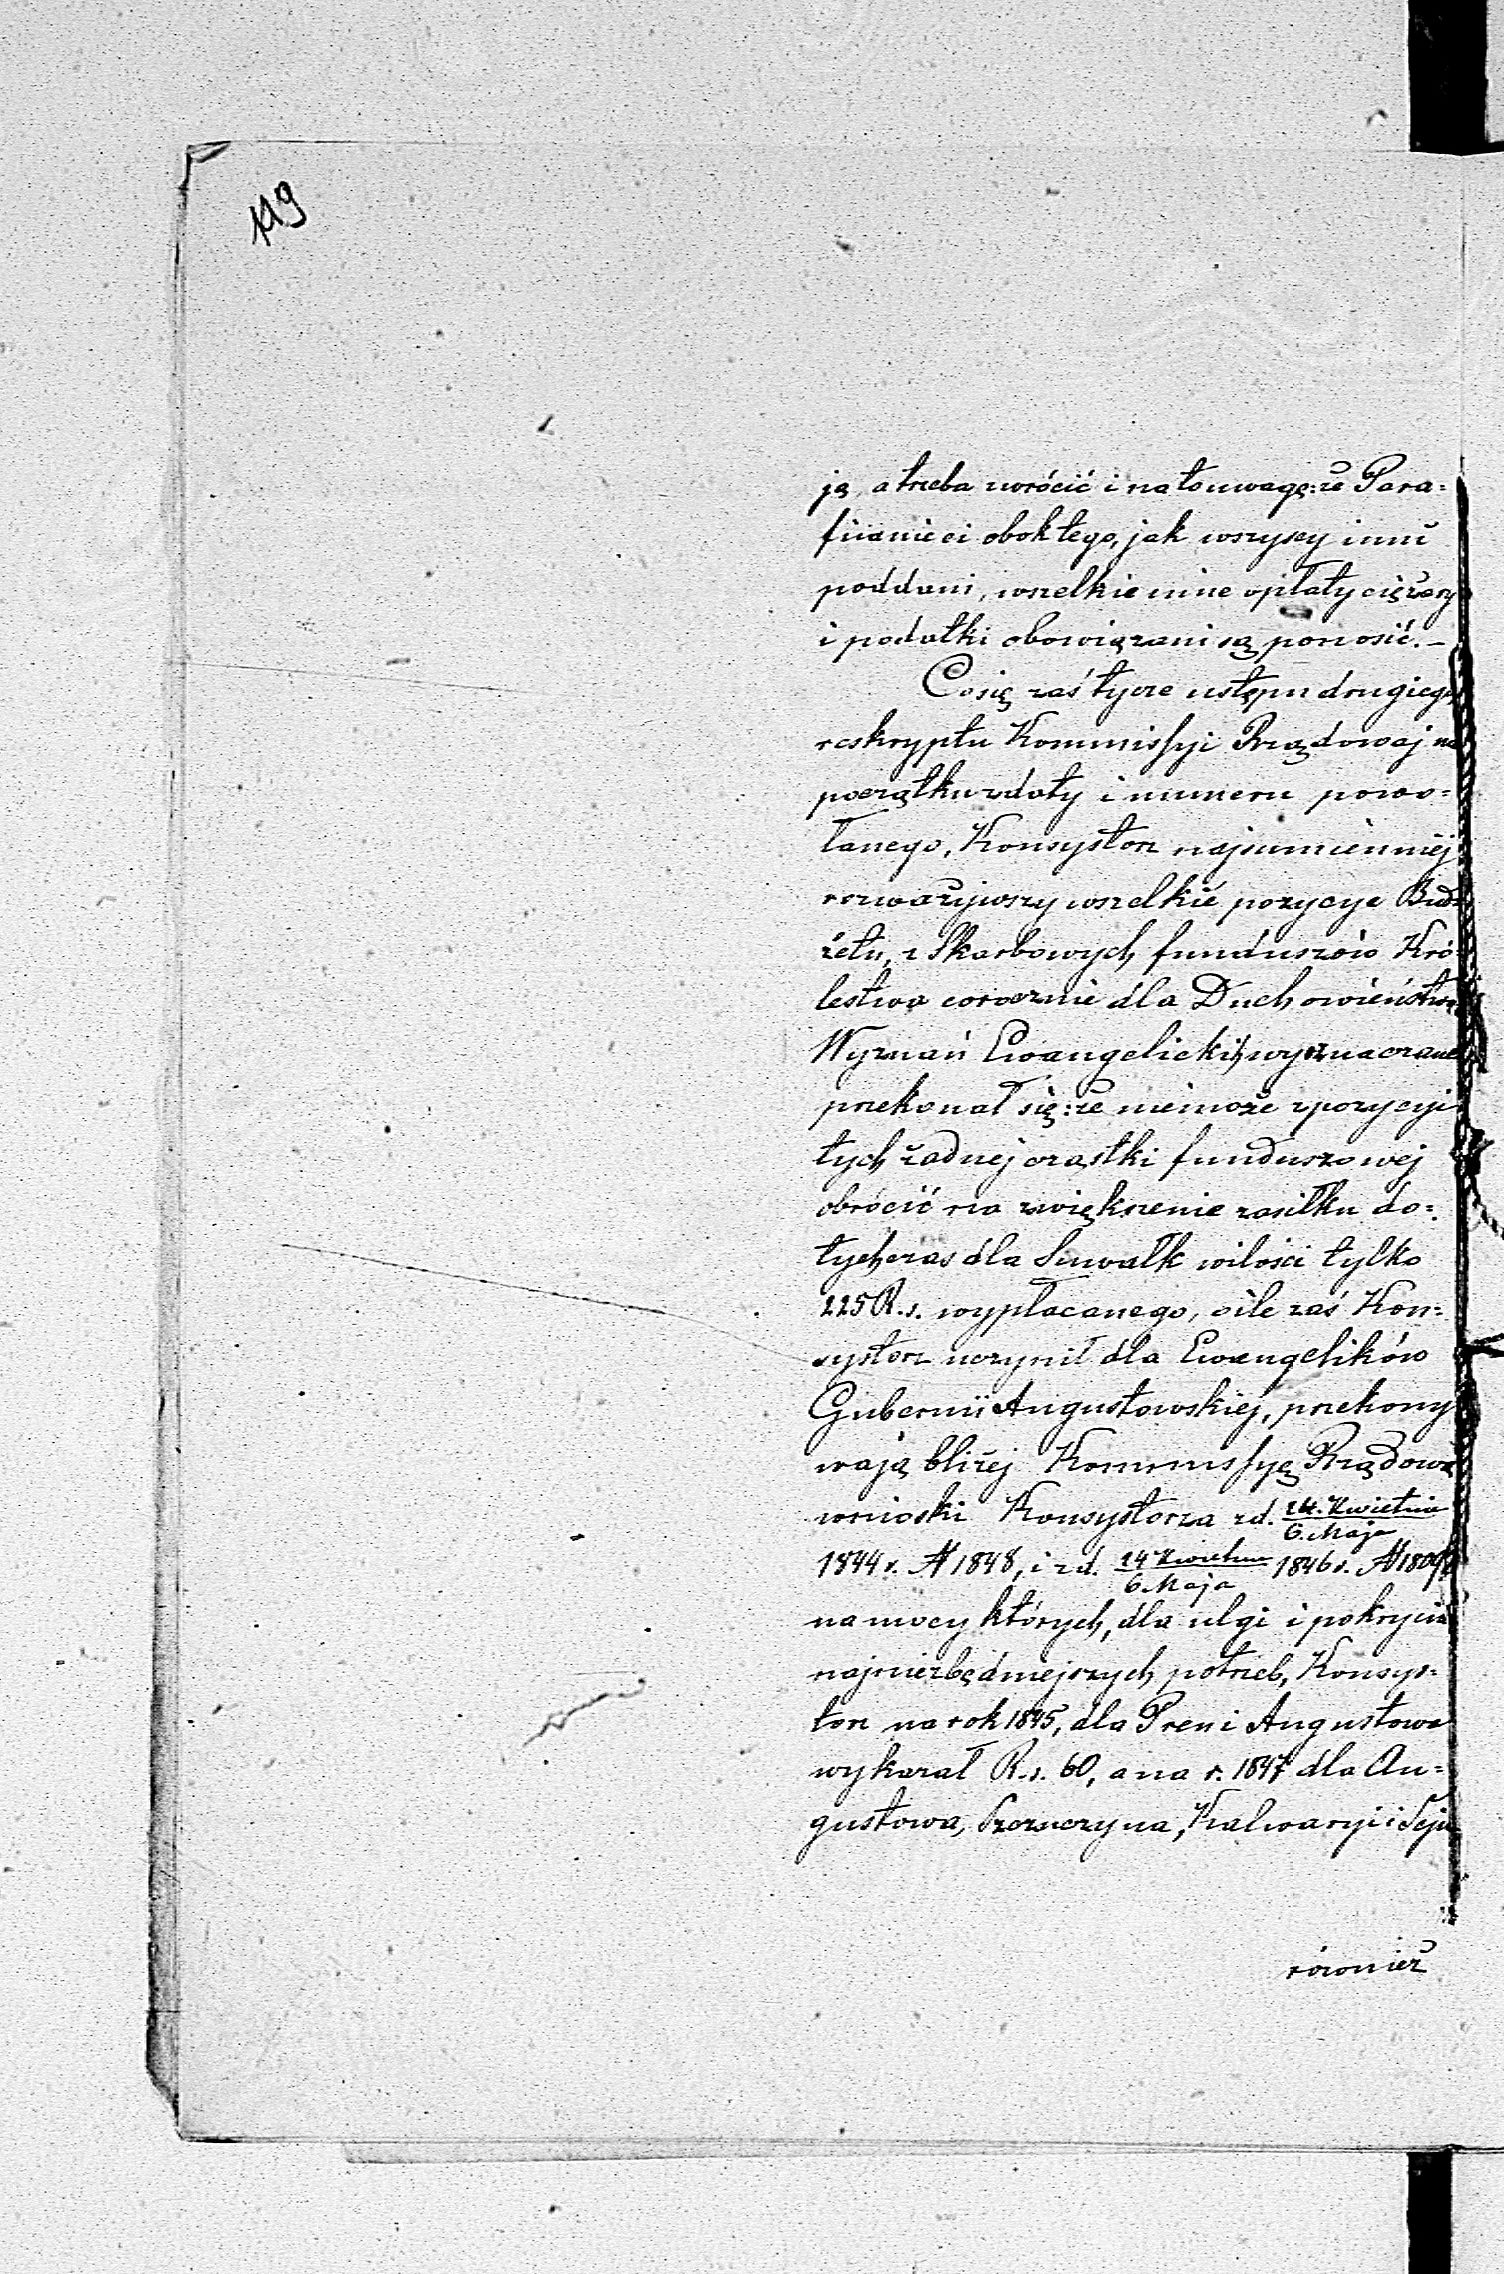 119
ją, a trzeba zwrócić i na to uwagę: że Para=
fiianie ci obok tego, jak wszyscy inni
poddani, wszelkie inne opłaty ciężary
i podatki obowiązani są ponosić. –
Co się zaś tycze ustępu drugiego
reskryptu Kommissyi Rządowej na
początku z daty i numeru powo=
łanego, Konsystorz najsumienniej
rozważywszy wszelkie pozycye Bud=
żetu, z Skarbowych funduszów Kró=
lestwa corocznie dla Duchowieństwa
Wyznań Ewangelickich wyznaczane
przekonał się: że nie może z pozycyi
tych żadnej cząstki funduszowej
obrócić na zwiększenie zasiłku do=
tychczas dla Suwałk w ilości tylko
225 R. s. wypłacanego, o ile zaś Kon=
systorz uczynił dla Ewangelików
Gubernii Augustowskiej, przekony
wają bliżej Kommissyę Rządową
wnioski Konsystorza z d. 24. Kwietnia
6. Maja
1844 r. N 1848, i z d. 24 Kwietnia 1846 r. N
6. Maja
na mocy których, dla ulgi i pokrycia
najniezbędniejszych potrzeb, Konsys=
torz na rok 1845, dla Pren i Augustowa
wykazał R. s. 60, a na r. 1847 dla Au=
gustowa, Szczuczyna, Kalwaryi i Sejn
również